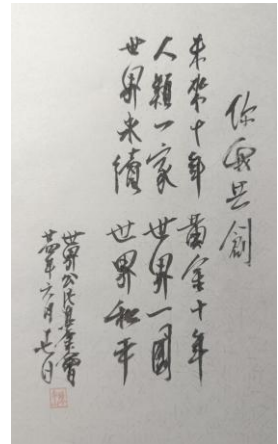 你我共創
未來十年 黃金十年
人類一家 世界一國
世界永續 世界和平
世界公民
年六月十七日